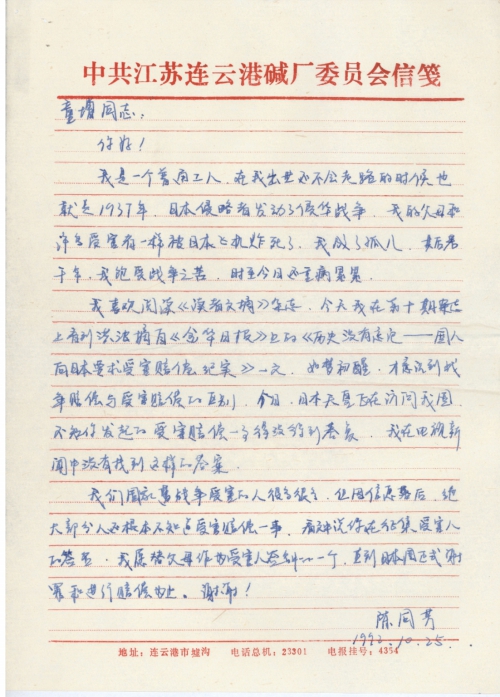 中共江苏连云港碱厂委员会信笺
童增同志：
你好！
我是一个普通工人，在我出世还不会走路的时候也
就是1937年，日本侵略者发动了侵华战争，我的父母和
许多受害者一样被日本飞机炸死了，我成了孤儿，
十年，我饱受战争之苦，时至今日还重病累累。
我喜欢阅读《读者文摘》杂志，今天我在第十期杂志
上看到 摘自《 日报》上的《历史没有忘记——国人
向日本要求受害赔偿纪实》一文，如梦初醒，才意识到战
争赔偿与受害赔偿的区别，今日，日本天皇正在访问我国，
不知你发起的受害赔偿一事得没得到答复，我在电视新
闻中没有找到这样的答案。
我们国家 战争受害的人很多很多，但因信息落后，绝
大部分人还根本不知道受害赔偿一事，看 说你在征集受害人
的签名，我愿替父母作为受害人签到一个，直到日本国正式谢
罪和进行赔偿为止。谢谢！
陈同芳
1992.10.25.
地址：连云港市墟沟 电话总机：23301 电报挂号：4354